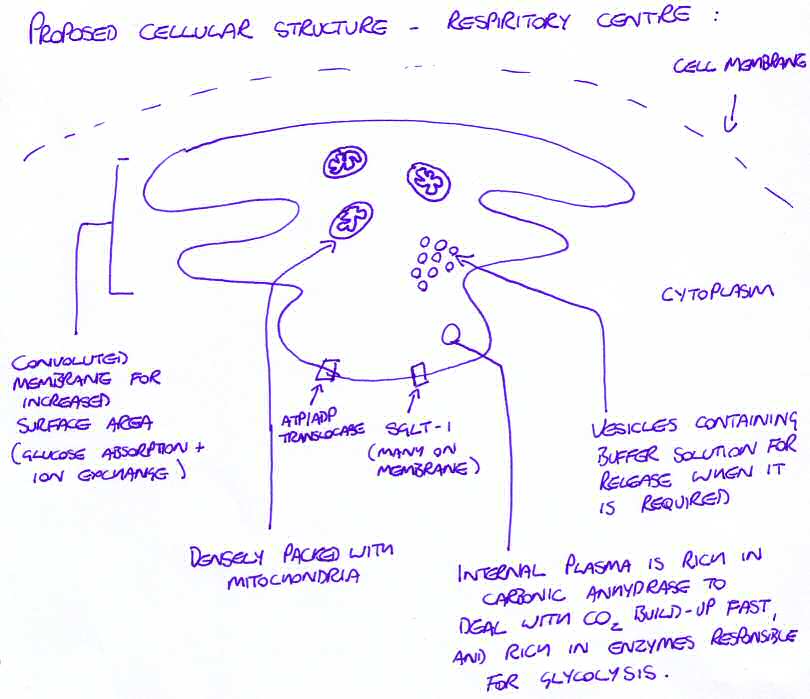 PROPOSED CELLULAR STRUCTURE - RESPIRITORY CENTRE :
CELL MEMBRANE
CYTOPLASM
CONVOLUTED
MEMBRANE FOR
INCREASED
SURFACE AREA
(GLUCOSE ABSORPTION +
ION EXCHANGE)
ATP/ADP
TRANSLOCASE
SGLT-1
(MANY ON
MEMBRANE)
VESICLES CONTAINING
BUFFER SOLUTION FOR
RELEASE WHEN IT
IS REQUIRED
DENSELY PACKED WITH
MITOCHONDRIA
INTERNAL PLASMA IS RICH IN
CARBONIC ANHYDRASE TO
DEAL WITH CO₂ BUILD-UP FAST,
AND RICH IN ENZYMES RESPONSIBLE
FOR GLYCOLYSIS.